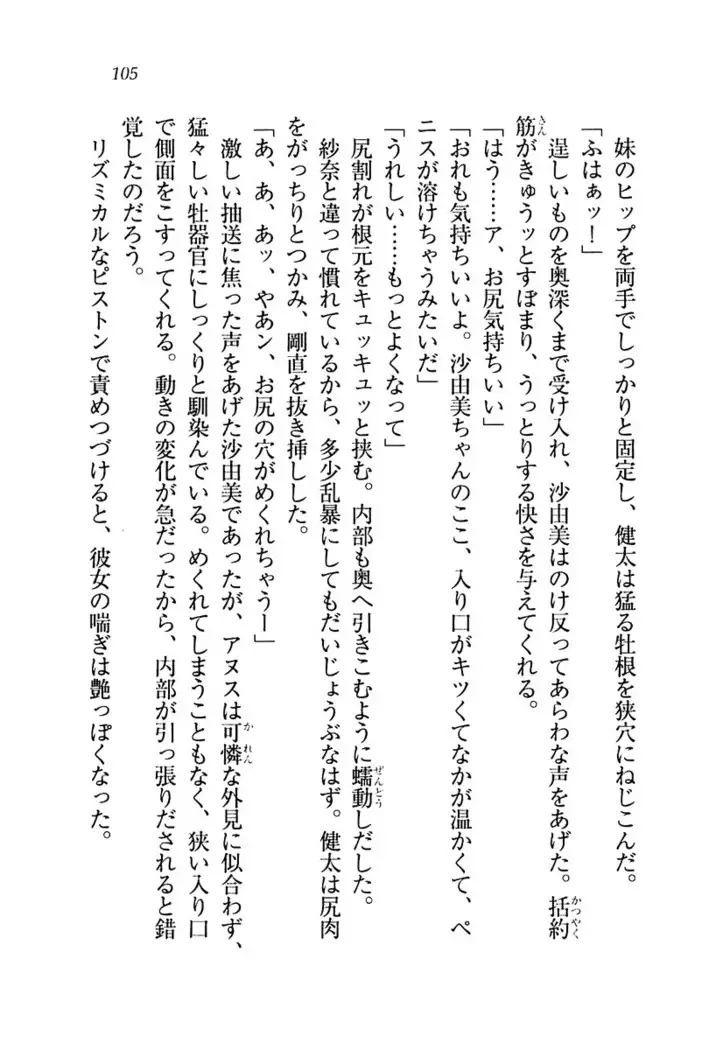 105
妹のヒップを両手でしっかりと固定し、健太は猛る牡根を狭穴にねじこんだ。
「ふはぁッ！」
逞しいものを奥深くまで受け入れ、沙由美はのけ反ってあらわな声をあげた。括約
筋がきゅうッとすぼまり、うっとりする快さを与えてくれる。
「はう……ア、お尻気持ちいい」
「おれも気持ちいいよ。沙由美ちゃんのここ、入り口がキツくてなかが温かくて、ペ
ニスが溶けちゃうみたいだ」
「うれしい……もっとよくなって」
尻割れが根元をキュッキュッと挟む。内部も奥へ引きこむように蠕動しだした。
紗奈と違って慣れているから、多少乱暴にしてもだいじょうぶなはず。健太は尻肉
をがっちりとつかみ、剛直を抜き挿しした。
「あ、あ、あッ、やあン、お尻の穴がめくれちゃうー」
激しい抽送に焦った声をあげた沙由美であったが、アヌスは可憐な外見に似合わず、
猛々しい牡器官にしっくりと馴染んでいる。めくれてしまうこともなく、狭い入り口
で側面をこすってくれる。動きの変化が急だったから、内部が引っ張りだされると錯
覚したのだろう。
リズミカルなピストンで責めつづけると、彼女の喘ぎは艶っぽくなった。